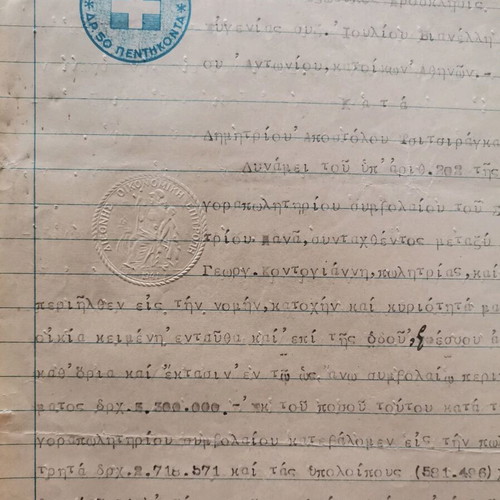 * ΔΡ. 50 ΠΕΝΤΗΚΟΝΤΑ *
Πρόκλησις
Εὐγενίας συζ. Ἰουλίου Βιανέλλη
ου Ἀντωνίου, κατοίκων Ἀθηνῶν.-
Κ α τ ά
Δημητρίου Ἀποστόλου Τσιτσιράγκα
Δυνάμει τοῦ ὑπ' ἀριθ. 202 τῆς
γοραπωλητηρίου συμβολαίου τοῦ
τρίου Μανᾶ, συνταχθέντος μεταξύ
Γεωργ. Κοντογιάννη, πωλητρίας, καί
περιῆλθεν εἰς τήν νομήν, κατοχήν καί κυριότητά μα
οἰκία κειμένη ἐνταῦθα καί ἐπί τῆς ὁδοῦ Ἐφέσου
καθ' ὅρια καί ἔκτασιν ἐν τῷ ὡς ἄνω συμβολαίῳ περι
ματος δρχ. 3.300.000.- Ἐκ τοῦ ποσοῦ τούτου κατά τ
γοραπωλητηρίου συμβολαίου κατεβάλομεν εἰς τήν πω
τρητά δρχ. 2.718.571 καί τάς ὑπολοίπους (581.426)